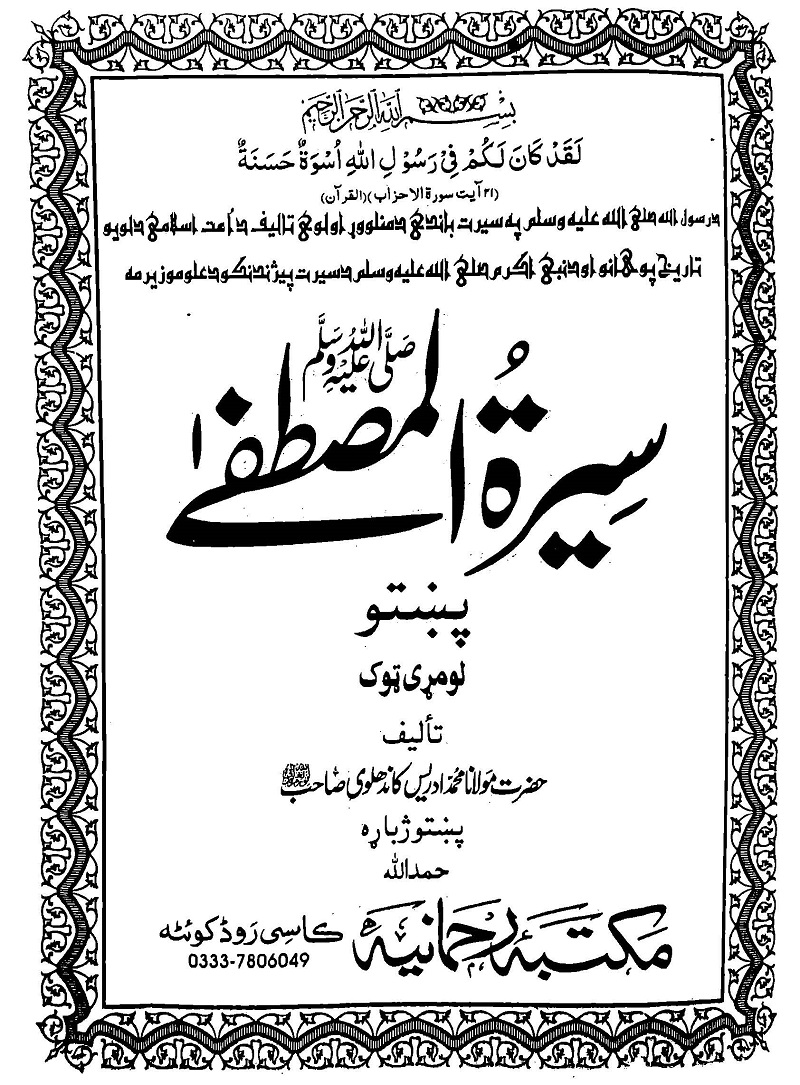 بِسْمِ اللهِ الرَّحْمٰنِ الرَّحِيْمِ
لَقَدْ كَانَ لَكُمْ فِيْ رَسُوْلِ اللهِ اُسْوَةٌ حَسَنَةٌ
(۲۱ آیت سورة الاحزاب)(القرآن)
درسول الله صلی الله علیه وسلم په سیرت باندې د منلو وړ او لوی تالیف د اُمت اسلامي دلویو
تاریخ پوهانو او د نبي اکرم صلی الله علیه وسلم د سیرت پیژندنکو د علومو زیرمه
سِيرةُ المصطفےٰ
صَلَّى اللهُ عَلَيْهِ وَسَلَّم
پښتو
لومړی ټوک
تأليف
حضرت مولانا محمد ادریس کاندھلوی صاحب
پښتو ژباړه
حمدالله
مکتبه رحمانیه
کاسی روڈ کوئٹه
0333-7806049